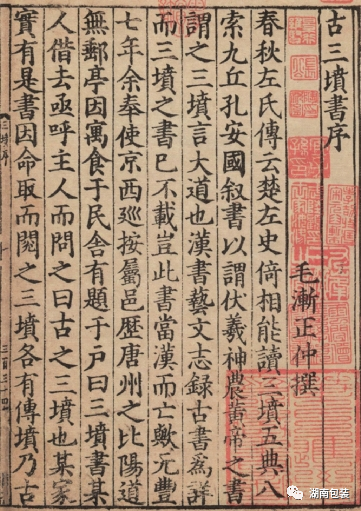 古三墳書序
毛漸正仲撰
春秋左氏傳云楚左史倚相能讀三墳五典八
索九丘孔安國叙書以謂伏羲神農黄帝之書
謂之三墳言大道也漢書藝文志録古書爲詳
而三墳之書已不載豈此書當漢而亡歟元豐
七年余奉使京西廵按屬邑歷唐州之比陽道
無郵亭因寓食于民舍有題于户曰三墳書某
人借去亟呼主人而問之曰古之三墳也某家
實有是書因命取而閲之三墳各有傳墳乃古
三墳序
湖南包装